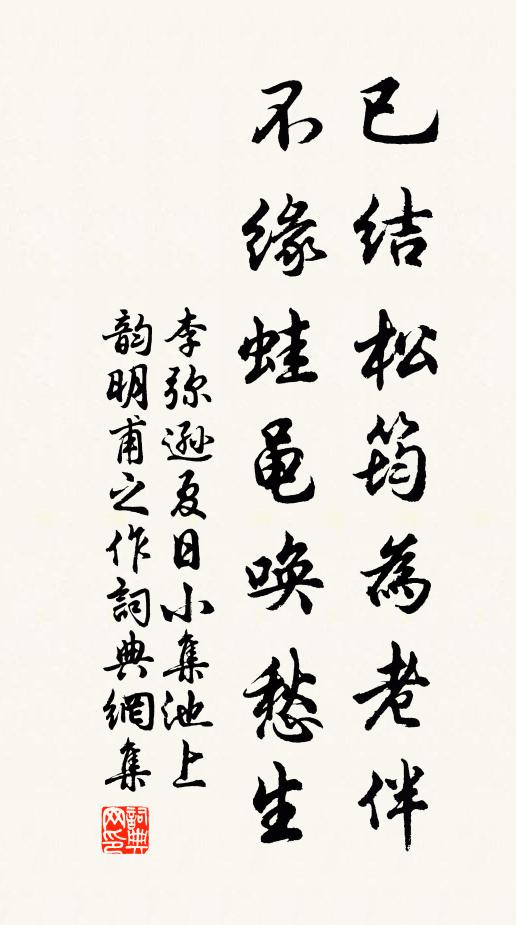 已结松筠為老伴
不缘蛙黾唤愁生
李弥逊夏日小集池上
韵明甫之作詞典網集
詞典网印